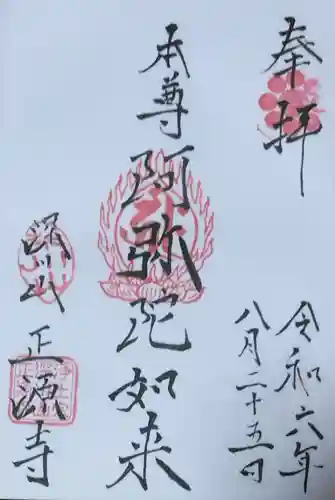 奉拝
令和六年
八月二十五日
本尊
阿弥陀如来
深川
正源寺